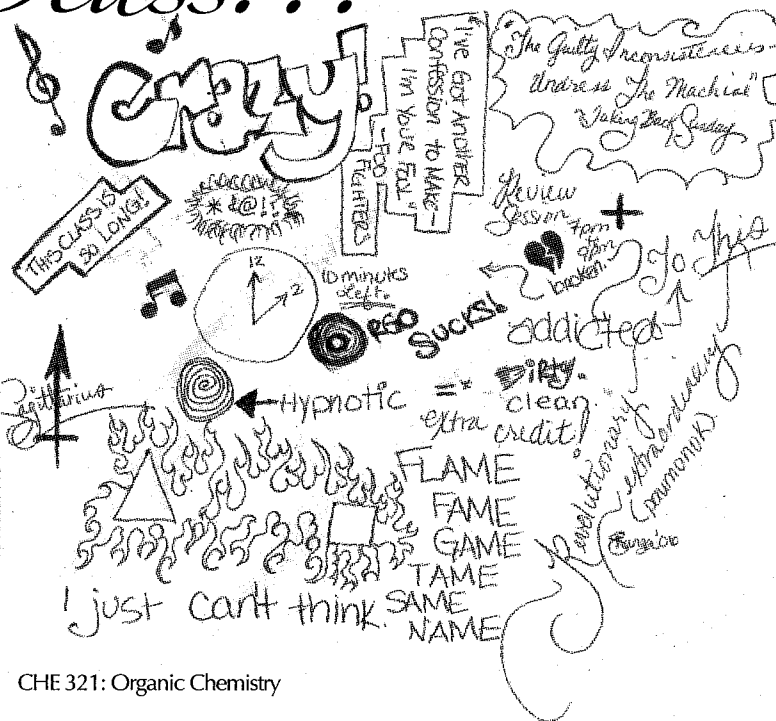 class. . .
Crazy!
"I've Got Another
Confession to Make-
I'm Your Fool"
-FOO
FIGHTERS
"The Guilty Inconsistencies-
Undress The Machine"
Taking Back Sunday
THIS CLASS IS
SO LONG!
* &@!?
Review
Session
7pm
to
9pm
+
broken.
12
2
10 minutes
left.
ORGO
SUCKS!
addicted
To This
Sagittarius
Hypnotic
=*
Dirty.
clean.
extra credit!
FLAME
FAME
GAME
TAME
SAME
NAME
Revolutionary
extraordinary
pnumonos.
I just can't think.
CHE 321: Organic Chemistry